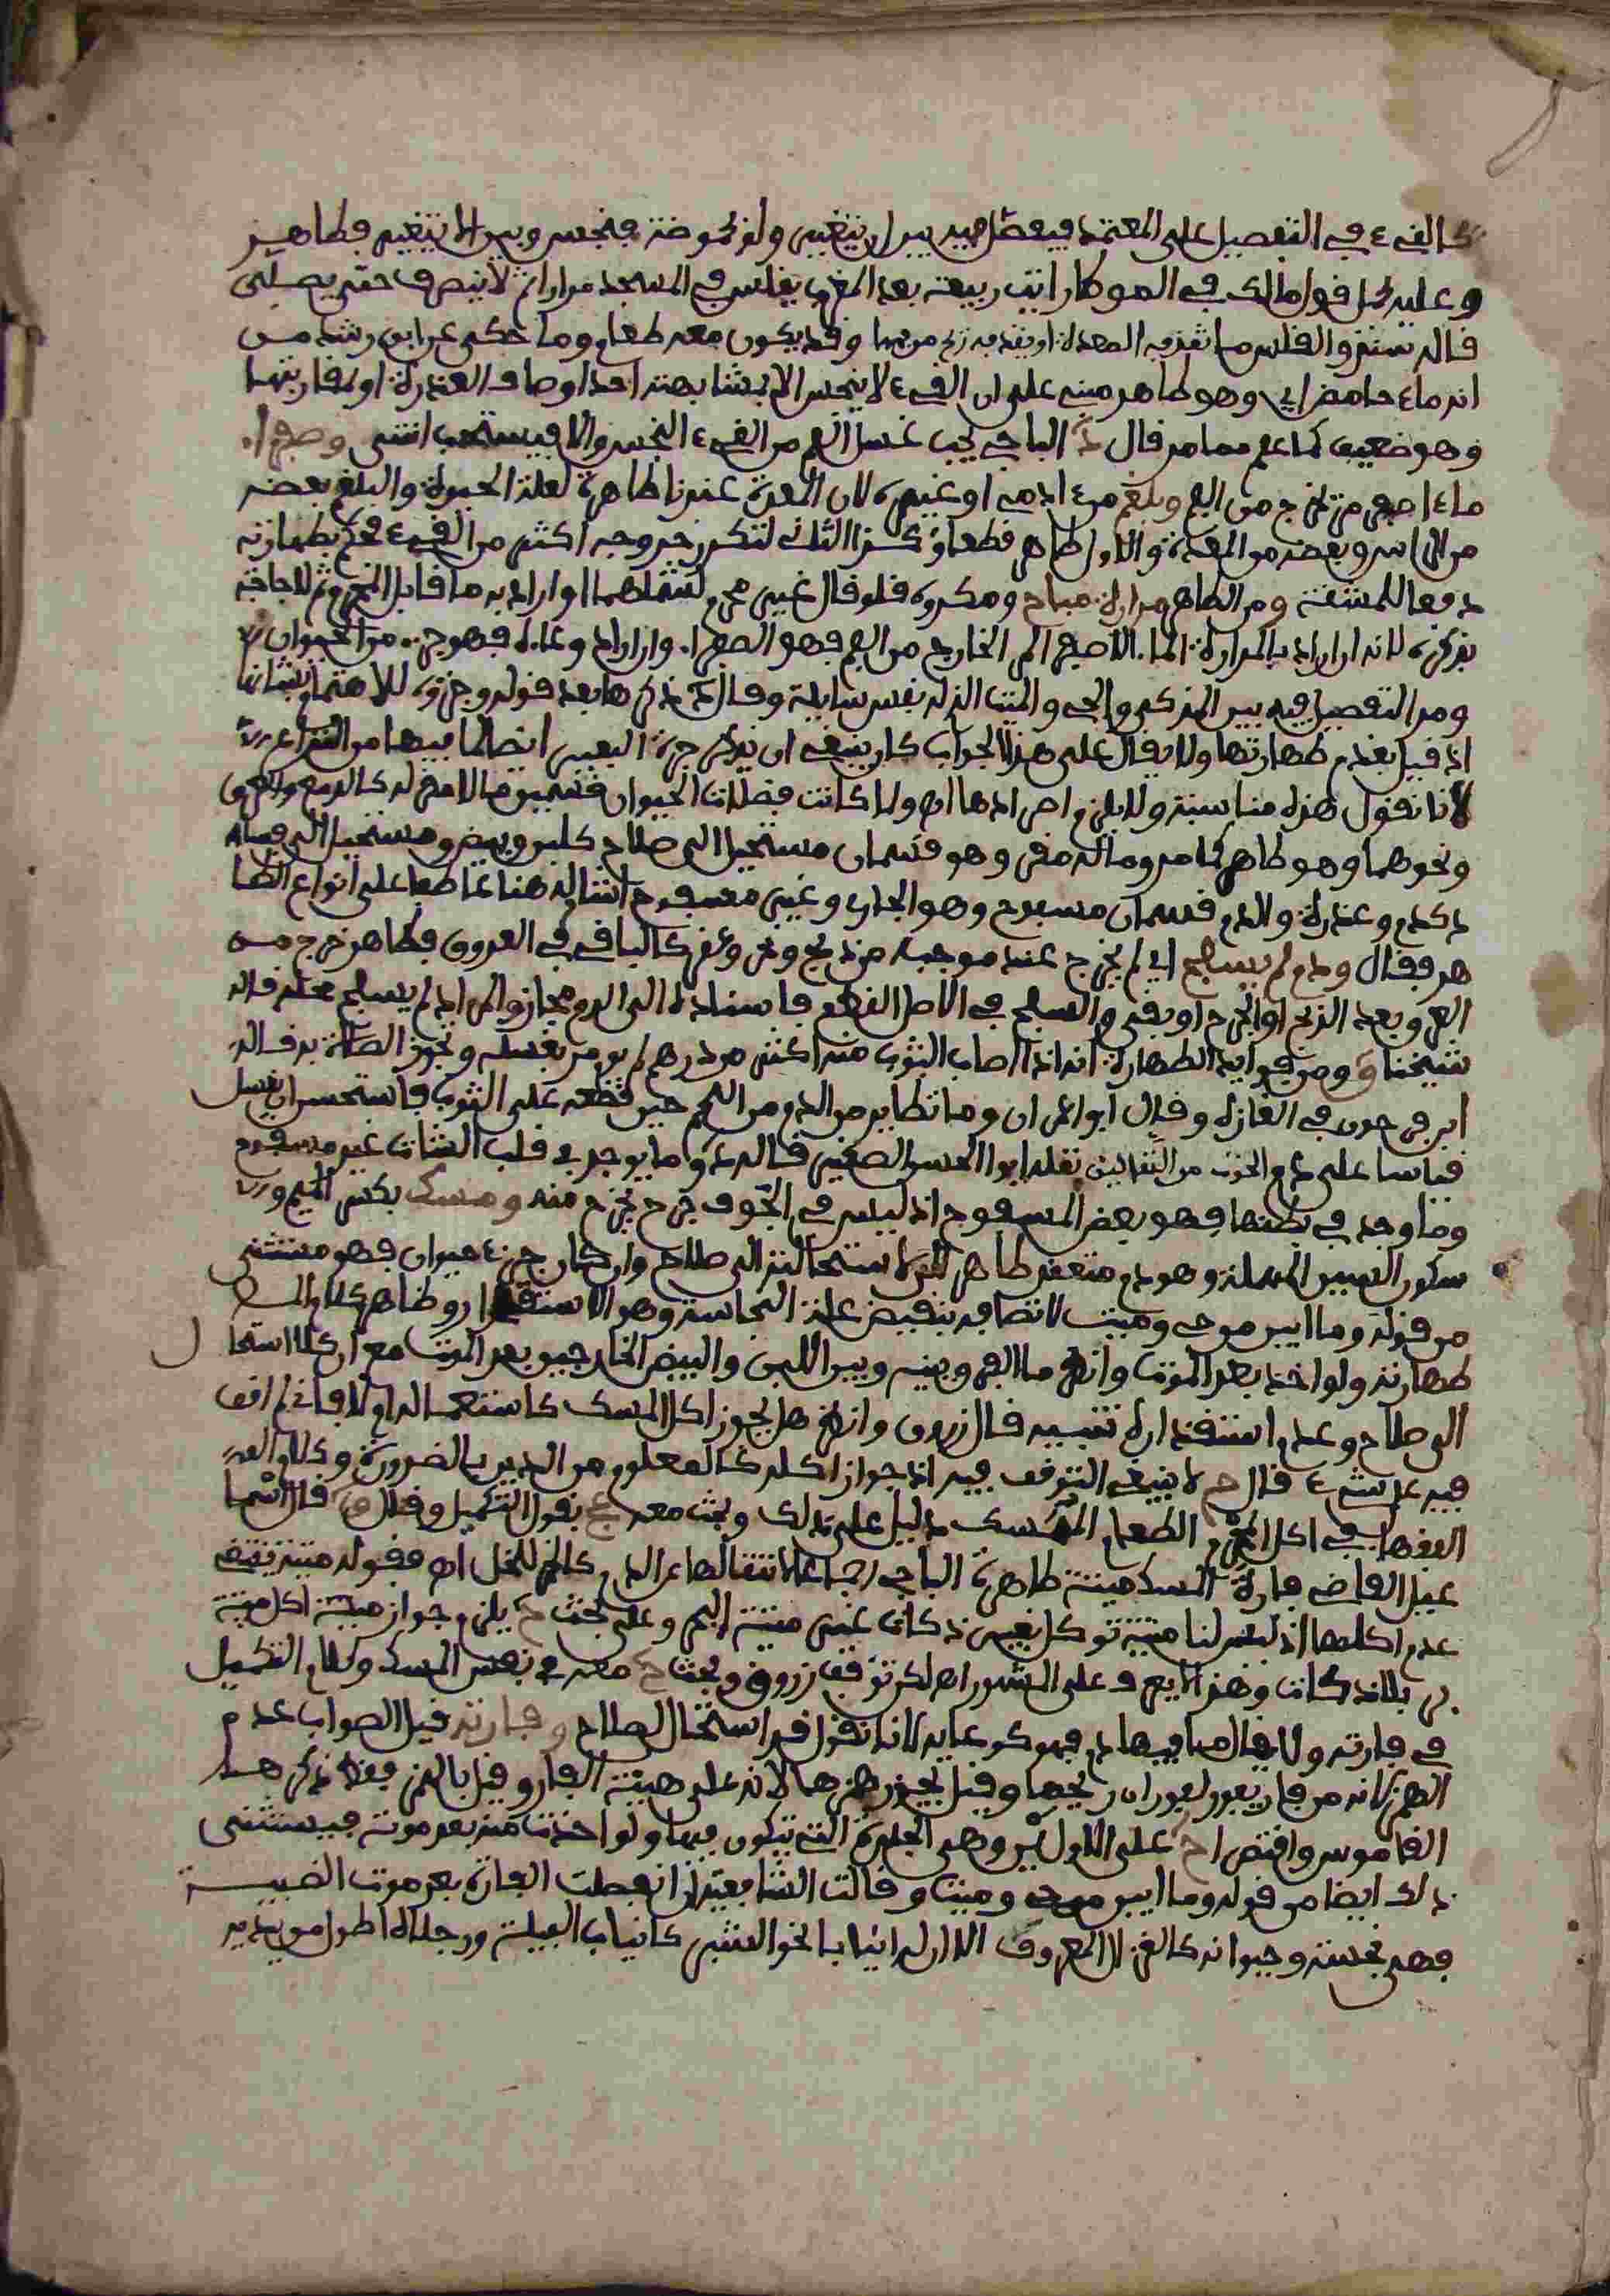 كالقيء في التفصيل على المعتمد فيفصل فيه بين ان يتغير ولو بحموضة فنجس وبين الا يتغير فطاهر
وعليه يحمل قول مالك في الموطا رايت ربيعة بعد المغرب يقلس في المسجد مرارا ثم لا ينصرف حتى يصلي
قاله سند والقلس ما تقذفه المعدة او يقذفه ريح من فمها وقد يكون معه طعام وما حكي عن ابن رشد من
انه ماء حامض اي وهو طاهر مبني على ان القيء لا ينجس الا بمشابهته احد اوصاف العذرة او لمقاربتها
وهو ضعيف كما علم مما مر قال الباجي يجب غسل الفم من القيء النجس والا فيستحب انتهى وصفراء
ماء اصفر من يخرج من الفم وبلغم من ادمي او غيره لان المعدة عندنا طاهرة لعلة الحيوة والبلغم بعضه
من الراس وبعضه من المعدة والاول طاهر قطعا وكذا الثاني لتكرر خروجه اكثر من القيء فحكم بطهارته
دفعا للمشقة ومن الطاهر مرارة مباح ومكروه فلو قال غير محرم لشملهما او اراد به ما قابل المحرم ثم لا حاجة
بذكره لانه ان اراد بالمرارة الماء الاصفر المر الخارج من الفم فهو الصفراء وان اراد وعاءه فهو جزء من الحيوان
ومر التفصيل فيه بين المذكى والحي والميت الذي له نفس سايلة وقال ذكرها بعد قوله وجزؤه للاهتمام بشانها
اذ قيل بعدم طهارتها ولا يقال على هذا الجواب كان ينبغي ان يذكر جرة البعير ايضا لما فيها من النزاع
لانا نقول هذه مناسبة ولا يلزم اطرادها اه ولما كانت فضلات الحيوان قسمين ما لا مقر له كالدمع والعرق
ونحوهما وهو طاهر كما مر وما له مقر وهو قسمان مستحيل الى صلاح كلبن وبيض ومستحيل الى فساد
كدم وعذرة والدم قسمان مسفوح وهو الجاري وغير مسفوح اشار له هنا عاطفا على انواع الطا
هر فقال ودم لم يسفح اي لم يخرج عند موجبه من ذبح ونحر وعقر كالباقي في العروق فطاهر خرج من
العرو بعد الذبح او الجرح او بقي والسفح في الاصل القطع فاسناده الى الدم مجاز والمراد لم يسفح محله قاله
شيخنا ق ومن فوايد الطهارة انه اذا اصاب الثوب منه اكثر من درهم لم يومر بغسله وتجوز الصلاة به قاله
ابن فرحون في الغازه وقال ابو عمران وما تطاير من الدم من اللحم حين قطعه على الثوب فاستحسن ان يغسل
قياسا على دم الحوت من التقاليين نقله ابو الحسن الصغير قاله وما يوجد في قلب الشاة غير مسفوح
وما وجد في بطنها فهو بعض المسفوح اذ ليس في الجوف جرح يخرج منه ومسك بكسر الميم و
سكون السين المهملة وهو دم منعقد طاهر لاستحالته الى صلاح وان كان جزء حيوان فهو مستثنى
من قوله وما ابين من حي وميت لاتصافه بنقيض علة النجاسة وهو الاستقذار وظاهر كلام
طهارته ولو اخذ بعد الموت وانظر ما الفرق بينه وبين اللبن والبيض الخارجين بعد الموت مع ان كلا استحال
الى صلاح وعدم استقذاره تنبيه قال زروق وانظر هل يجوز اكل المسك كاستعماله ام لا فاني لم اقف
فيه على شيء قال ح لا ينبغي التوقف فيه اذ جواز اكله كالمعلوم من الدين بالضرورة وكلام
الفقهاء في اكل المحرم الطعام الممسك دليل على ذلك وبحث معه عج بقول التكميل وقال قال اسما
عيل القاضي فارة المسك ميتة طاهرة الباجي اجماعا لانتقالها عن الدم كالخمر للخل اه فقوله ميتة يقتضي
عدم اكلها اذ ليس لنا ميتة توكل بغير ذكاة غير ميتة البحر وعلى بحث يلزم جواز ميتة اكل ميتة
بر بلا ذكاة وهذا لا يعرف على المشهور اه لكن توقف زروق وبحث معه في نفس المسك وكلام التكميل
في فارته ولا يقال ما فيها دم فهو كوعايه لانا نقول قد استحال لصلاح وفارته قيل الصواب عدم
الهمز لانه من فار يفور لفوران ريحها وقيل يجوز همزها لانه على هيئة الفار وقيل بالهمز فقط ذكرهما
القاموس واقتصر على الاول وهي الجلدة التي يتكون فيها ولو اخذت منه بعد موته فيستثنى
ذلك ايضا من قوله وما ابين من حي وميت وقالت الشافعية ان انفصلت الفارة بعد موت الضبية
فهي نجسة وحيوانه كالغزال المعروف الا ان له انيابا نحو الشبر كانياب الفيلة ورجلاه اطول من يديه